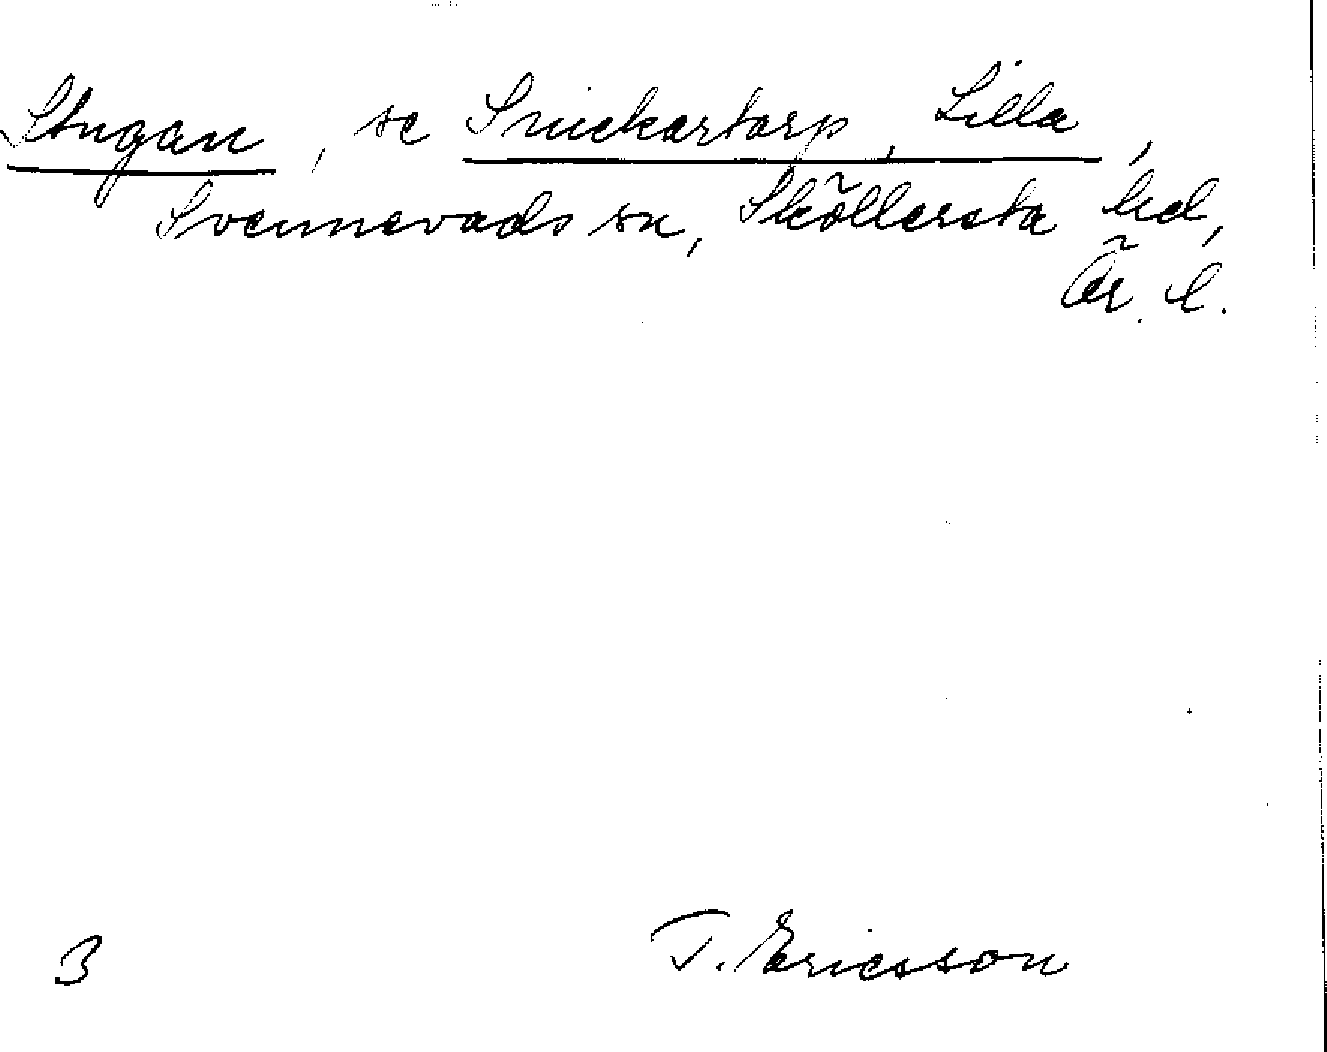 Stugan, se Snickartorp, Lilla,
Svennevads sn, Sköllersta hd,
Ör. l.
3 T. Ericsson